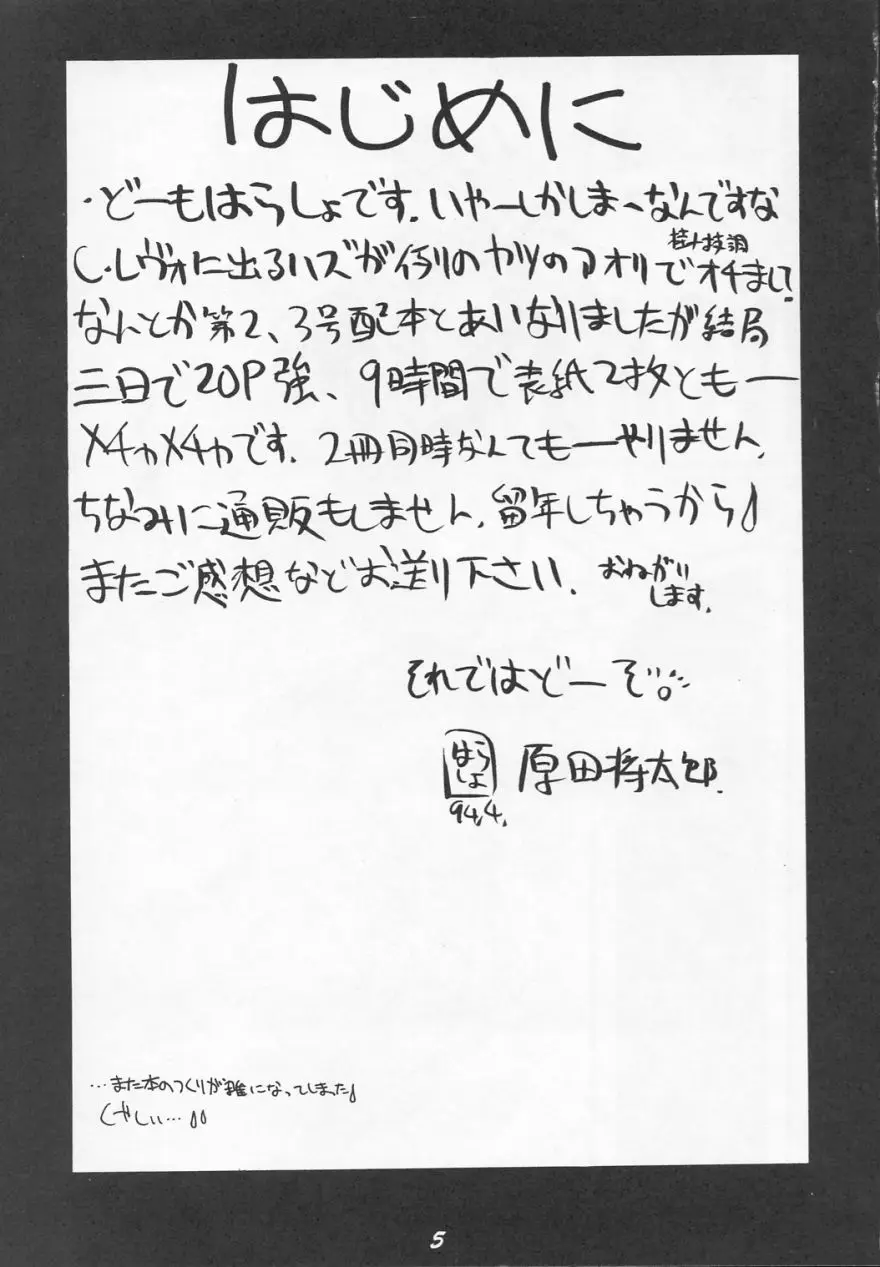 はじめに
・どーもはらしょです。いやーしかしまーなんですな
C・レヴォに出るハズが例のヤツのアオリでオチまして
なんとか第2、3号配本とあいなりましたが結局
三日で20P強、9時間で表紙2枚ともー
メチャメチャです。2冊同時なんてもーやりません。
ちなみに通販もしません。留年しちゃうから♪
またご感想などお送り下さい。おねがい
します。
それではどーぞ。
はらしょ 原田将太郎
94.4.
…また本のつくりが雑になってしまった♪
くやしい…♪♪
5